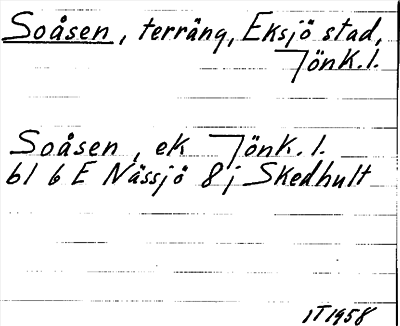 Soåsen, terräng, Eksjö stad,
Jönk.l.
Soåsen, ek Jönk.l.
bl 6 E Nässjö 8j Skedhult
IT 1958